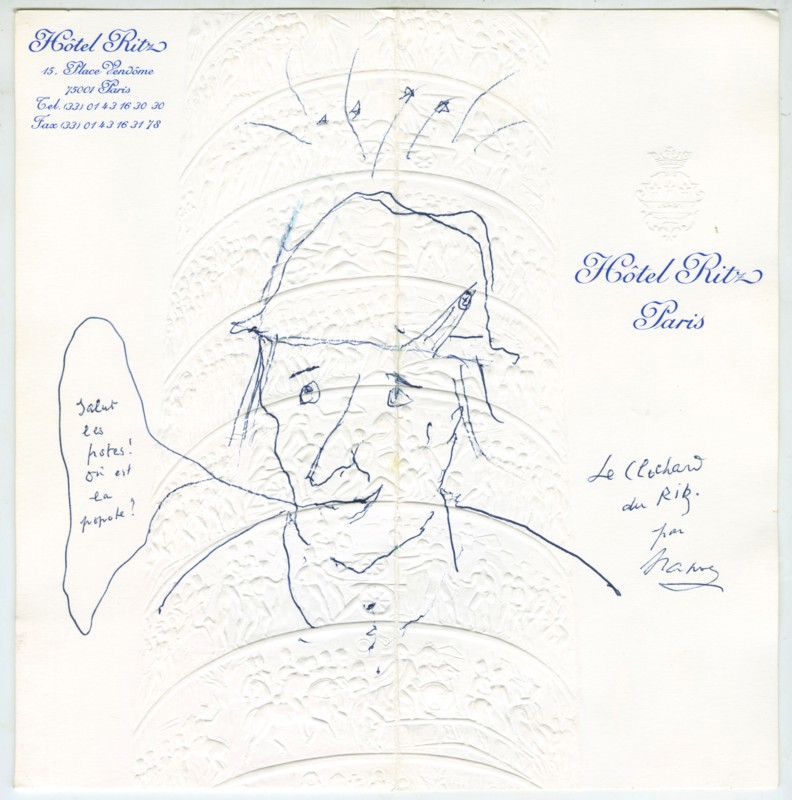 Hôtel Ritz
15, Place Vendôme
75001 Paris
Tel. (33) 01 43 16 30 30
Fax (33) 01 43 16 31 78
Hôtel Ritz
Paris
Salut
les
potes!
Où est
la
popote?
Le Clochard
du Ritz.
par